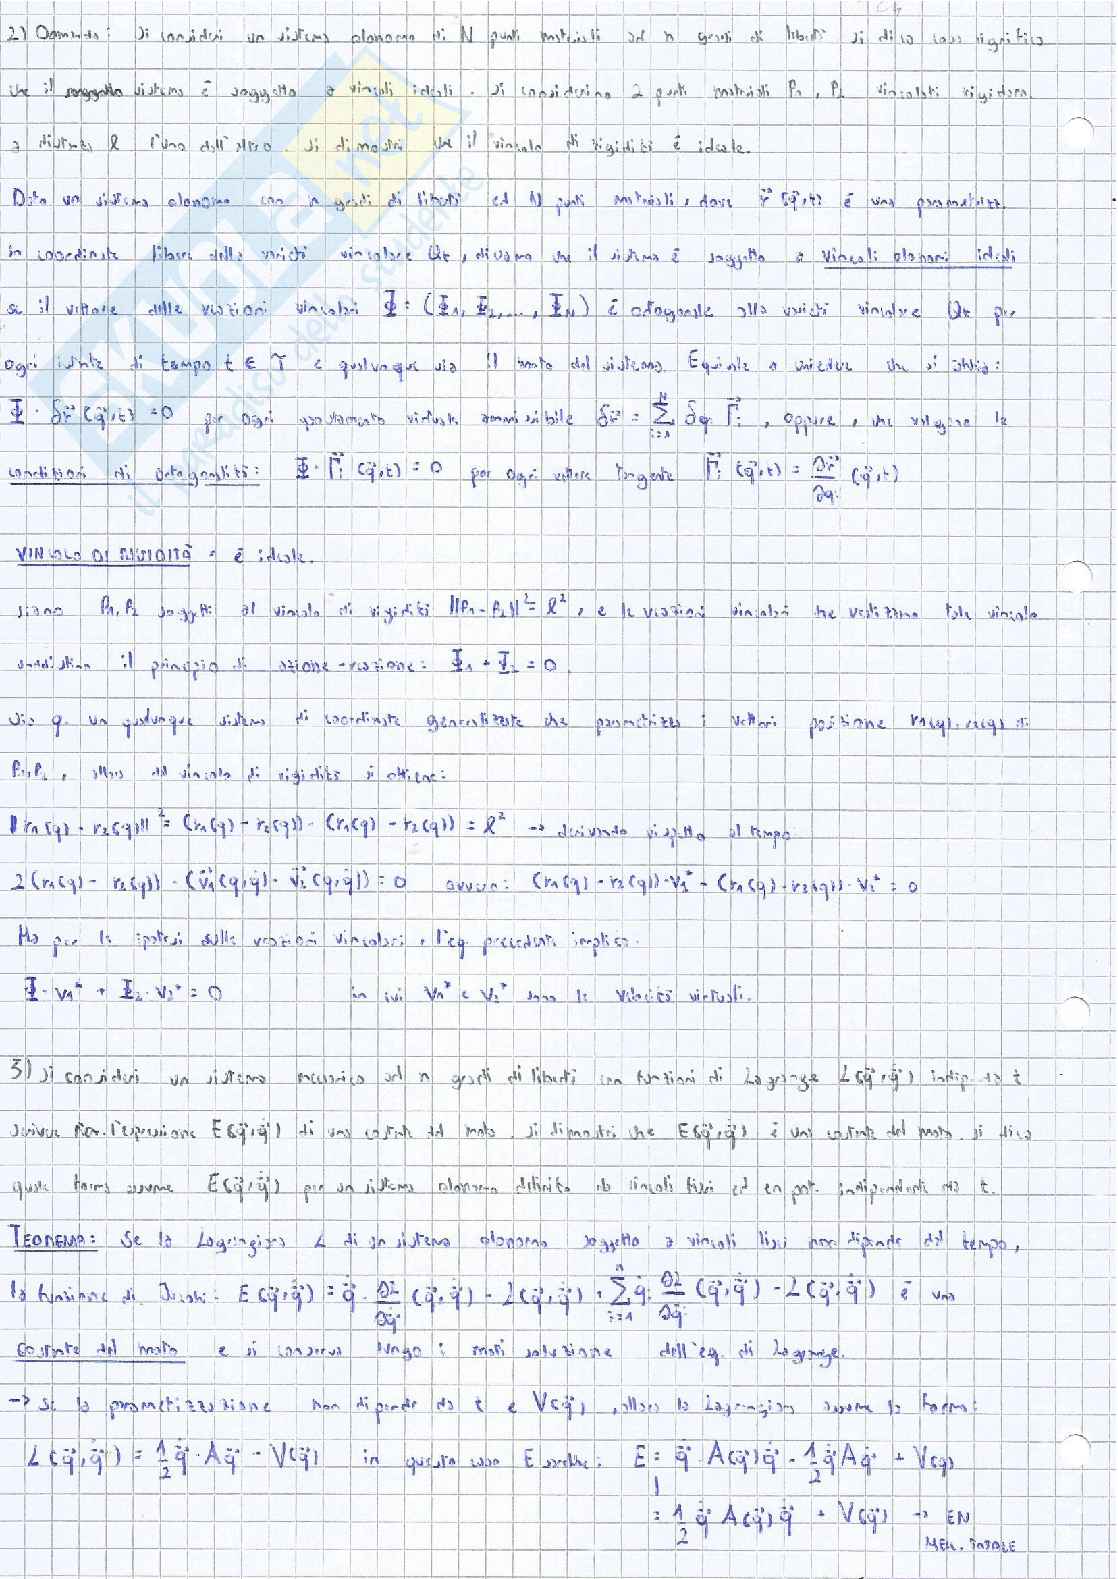 2) Domanda: si consideri un sistema olonomo di N punti materiali ad n gradi di libertà si dica cosa significa
che il sistema è soggetto a vincoli ideali. si considerino 2 punti materiali P1, P2 vincolati rigidam.
a distanza l l'uno dall'altro. si dimostri che il vincolo di rigidità è ideale.
Dato un sistema olonomo con n gradi di libertà ed N punti materiali, dove r⃗(q⃗,t) è una parametrizz.
in coordinate libere della varietà vincolare Qt, diciamo che il sistema è soggetto a vincoli olonomi ideali
se il vettore delle reazioni vincolari Φ = (Φ1, Φ2, ..., ΦN) è ortogonale alla varietà vincolare Qt per
ogni istante di tempo t ∈ T e qualunque sia il moto del sistema. Equivale a chiedere che si abbia:
Φ · δr⃗(q⃗,t) = 0 per ogni spostamento virtuale ammissibile δr⃗ = Σ δqi Γ⃗i, oppure, che valgano le
condizioni di ortogonalità: Φ · Γ⃗i (q⃗,t) = 0 per ogni vettore tangente Γ⃗i (q⃗,t) = ∂r⃗/∂qi (q⃗,t)
VINCOLO DI RIGIDITÀ = è ideale.
siano P1, P2 soggetti al vincolo di rigidità ||P1 - P2||² = l², e le reazioni vincolari che realizzano tale vincolo
soddisfino il principio di azione-reazione: Φ1 + Φ2 = 0.
sia q un qualunque sistema di coordinate generalizzate che parametrizza i vettori posizione r1(q), r2(q) di
P1, P2, allora dal vincolo di rigidità si ottiene:
||r1(q) - r2(q)||² = (r1(q) - r2(q)) · (r1(q) - r2(q)) = l² → derivando rispetto al tempo
2(r1(q) - r2(q)) · (v⃗1(q,q̇) - v⃗2(q,q̇)) = 0 ovvero: (r1(q) - r2(q)) · v1* - (r1(q) - r2(q)) · v2* = 0
Ma per le ipotesi sulle reazioni vincolari, l'eq. precedente implica:
Φ · v1* + Φ2 · v2* = 0 in cui v1* e v2* sono le velocità virtuali.
3) si consideri un sistema meccanico ad n gradi di libertà con funzioni di Lagrange L(q⃗,q⃗̇) indip. da t
scrivere l'espressione E(q⃗,q⃗̇) di una costante del moto. si dimostri che E(q⃗,q⃗̇) è una costante del moto. si dica
quale forma assume E(q⃗,q⃗̇) per un sistema olonomo definito da vincoli fissi ed en pot. indipendente da t.
TEOREMA: Se la Lagrangiana L di un sistema olonomo soggetto a vincoli lisci non dipende dal tempo,
la funzione di Jacobi: E(q⃗,q⃗̇) = q⃗̇ · ∂L/∂q⃗̇ (q⃗,q⃗̇) - L(q⃗,q⃗̇) = Σ q̇i ∂L/∂q̇i (q⃗,q⃗̇) - L(q⃗,q⃗̇) è una
costante del moto e si conserva lungo i moti soluzione dell'eq. di Lagrange.
→ Se la parametrizzazione non dipende da t e V(q⃗), allora la Lagrangiana assume la forma:
L(q⃗,q⃗̇) = 1/2 q⃗̇ · A q⃗̇ - V(q⃗) in questo caso E sarebbe: E = q⃗̇ A(q⃗) q⃗̇ - 1/2 q⃗̇ A q⃗̇ + V(q)
= 1/2 q⃗̇ A(q⃗) q⃗̇ + V(q⃗) → EN
MECC. TOTALE
SKUOLA.net
il paradiso dello studente